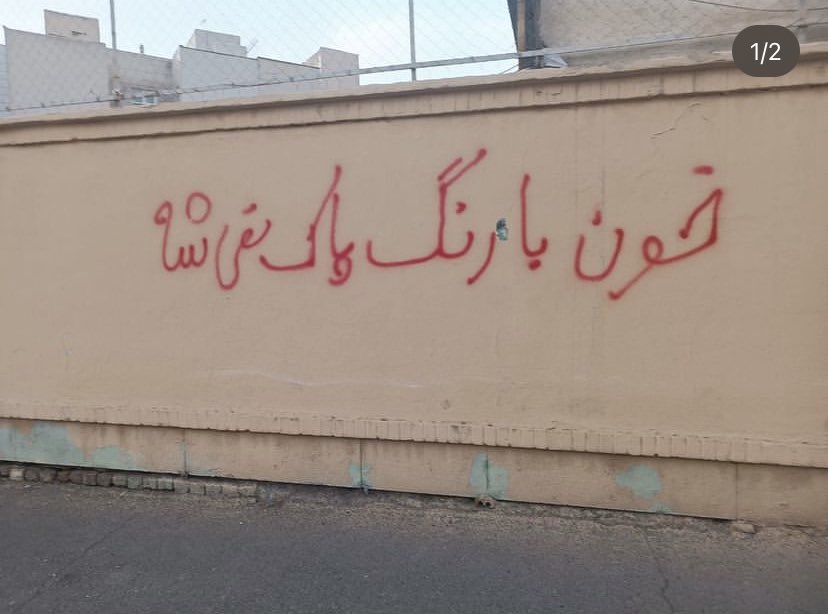 1/2
خون با رنگ پاک نمی شه